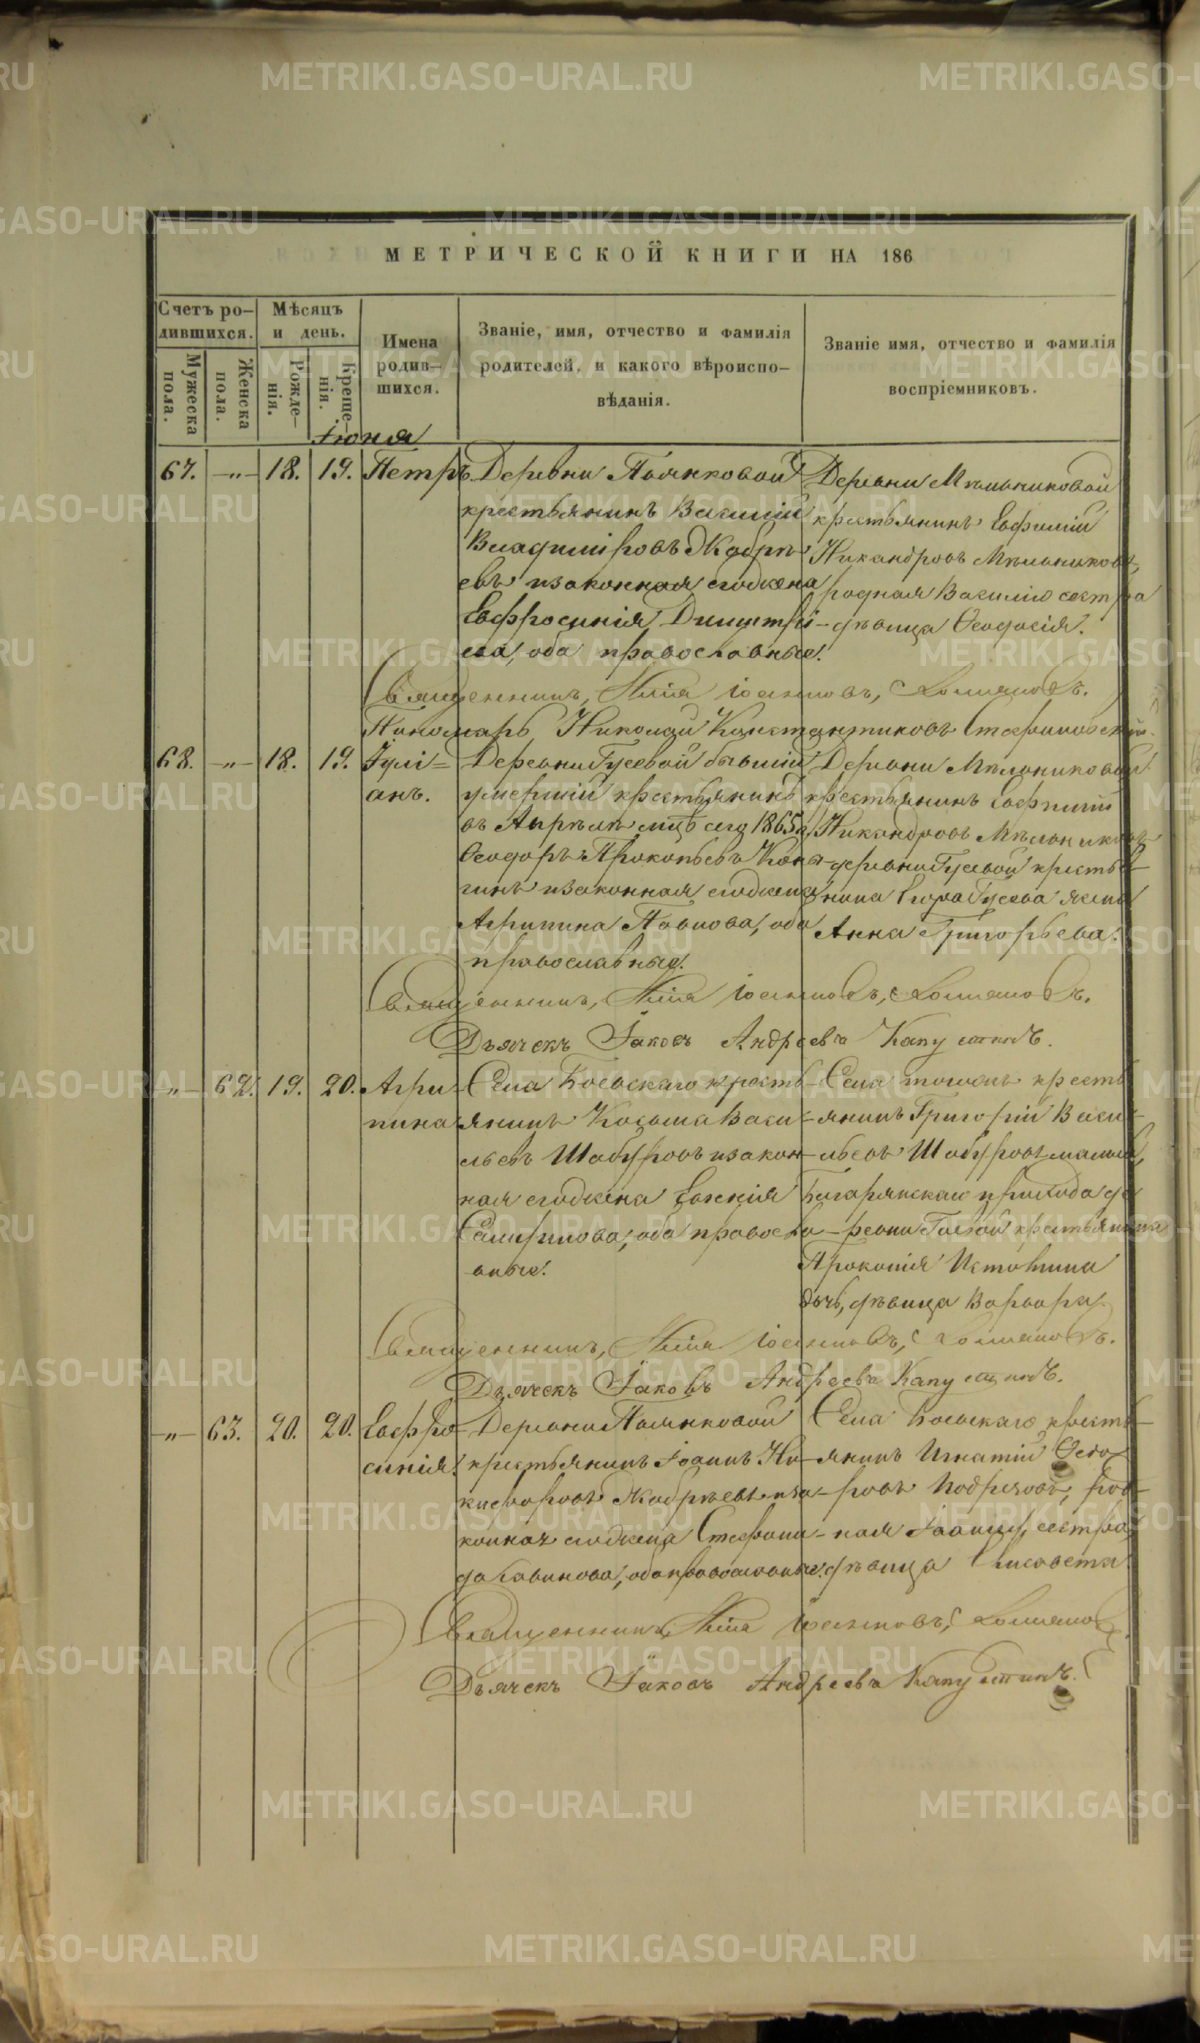 МЕТРИЧЕСКОЙ КНИГИ НА 186
Счетъ ро-
дившихся.
Мѣсяцъ
и день.
Мужеска
пола.
Женска
пола.
Рожде-
нія.
Креще-
нія.
Имена
родив-
шихся.
Званіе, имя, отчество и фамилія
родителей, и какого вѣроиспо-
вѣданія.
Званіе имя, отчество и фамилія
воспріемниковъ.
Іюня
67. —„— 18. 19. Петръ
Деревни Полянковой
крестьянинъ Василій
Владиміровъ Жабрѣ-
евъ и законная его жена
Евфросинія Димитрі-
ева, оба православные.
Деревни Мѣльниковой
крестьянинъ Евфимій
Никандровъ Мѣльниковъ,
родная Василію сестра
дѣвица Ѳеодосія.
Священникъ, Илія Іоакимовъ,
Пономарь Николай Константиновъ Стефановскій.
68. —„— 18. 19. Іулі-
анъ.
Деревни Гусевой бывшій
умершій крестьянинъ
въ Апрѣлѣ мцѣ сего 1865 г.
Ѳеодоръ Прокопьевъ
и законная его жена
Агрипина Павлова, оба
православные.
Деревни Мѣльниковой
крестьянинъ Евфимій
Никандровъ Мѣльниковъ
деревни Гусевой крестья-
нина Егора Гусева жена
Анна Григорьева.
Священникъ, Илія Іоакимовъ,
Дьячекъ Іаковъ Андреевъ Капустинъ.
„ 62. 19. 20. Агри-
пина
Села крестья-
янинъ Косьма Васи-
льевъ Шабуровъ и закон-
ная его жена Евгенія
Селифонова, оба правосла-
вные.
Села тогожъ кресть-
янинъ Григорій Васи-
льевъ Шабуровъ
Багарякскаго прихода де-
ревни Голой крестьянина
Прокопія Истомина
дочь, дѣвица Варвара.
Священникъ, Илія Іоакимовъ,
Дьячекъ Іаковъ Андреевъ Капустинъ.
—„— 63. 20. 20. Евфро-
синія.
Деревни Полянковой
крестьянинъ Іоаннъ Ни-
кифоровъ Жабрѣевъ и за-
конная его жена Стефани-
да Савинова, оба православные.
Села кресть-
янинъ Игнатій Ѳедо-
ровъ род-
ная Іоанну сестра,
дѣвица Елисавета
Священникъ, Илія Іоакимовъ,
Дьячекъ Іаковъ Андреевъ Капустинъ.
METRIKI.GASO-URAL.RU